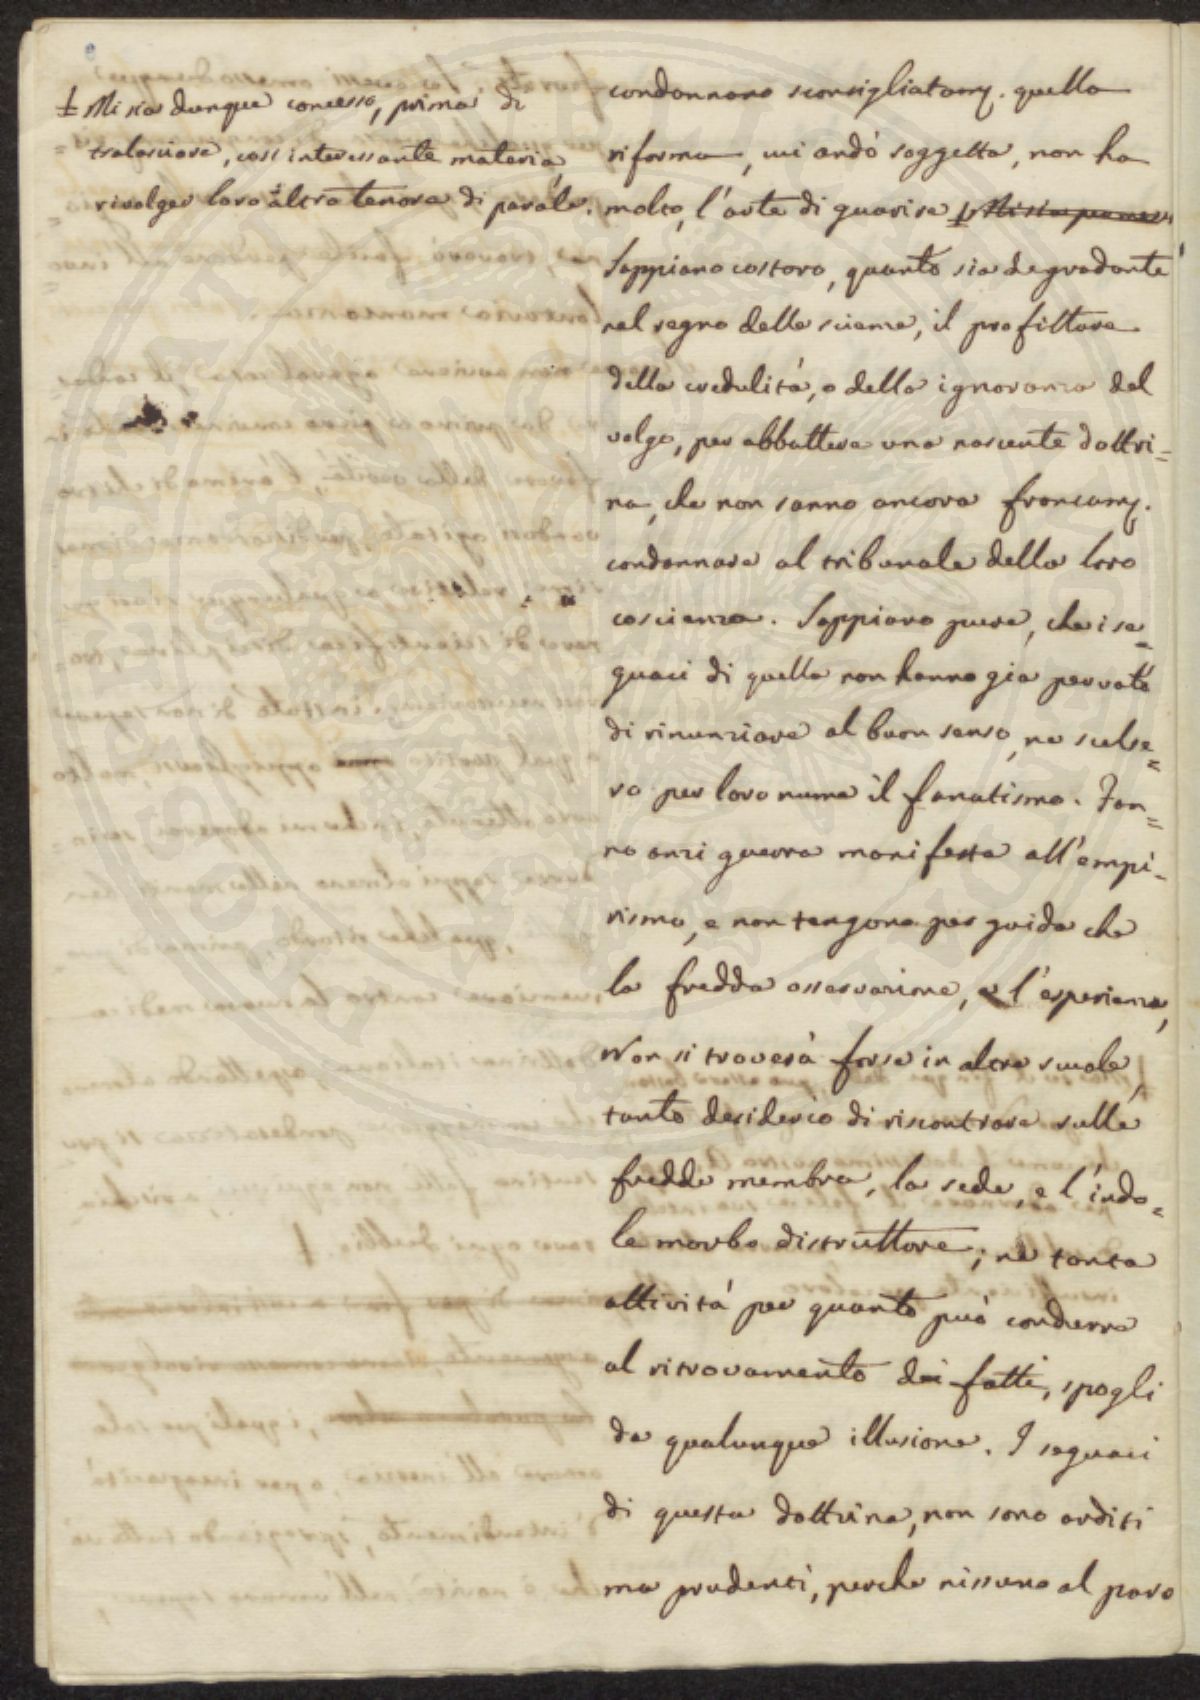 Mi sia dunque concesso, prima di
tralasciare, così interessante materia,
rivolger loro altro tenore di parole.
condannano sconsigliatam. quella
riforma, cui andò soggetta, non ha
molto, l'arte di guarire Mi sia
Sappiano costoro, quanto sia degradante
nel regno delle scienze, il profittare
della credulità, o della ignoranza del
volgo, per abbattere una nascente dottri=
na, che non sanno ancora francam.
condannare al tribunale della loro
coscienza. Sappiano pure, che i se=
guaci di quella non hanno già
di rinunziare al buon senso, ne scelse=
ro per loro nume il fanatismo. Fan=
no anzi guerra manifesta all'empi=
rismo, e non tengono per guida che
la fredda osservazione, e l'esperienza,
Non si troverà forse in altre scuole,
tanto desiderio di riscontrare sulle
fredde membra, la sede, e l'indo=
le morbo distruttore; ne tanta
attività per quanto può condurre
al ritrovamento dei fatti, spogli
da qualunque illusione. I seguaci
di questa dottrina, non sono arditi
ma prudenti, perche nissuno al paro